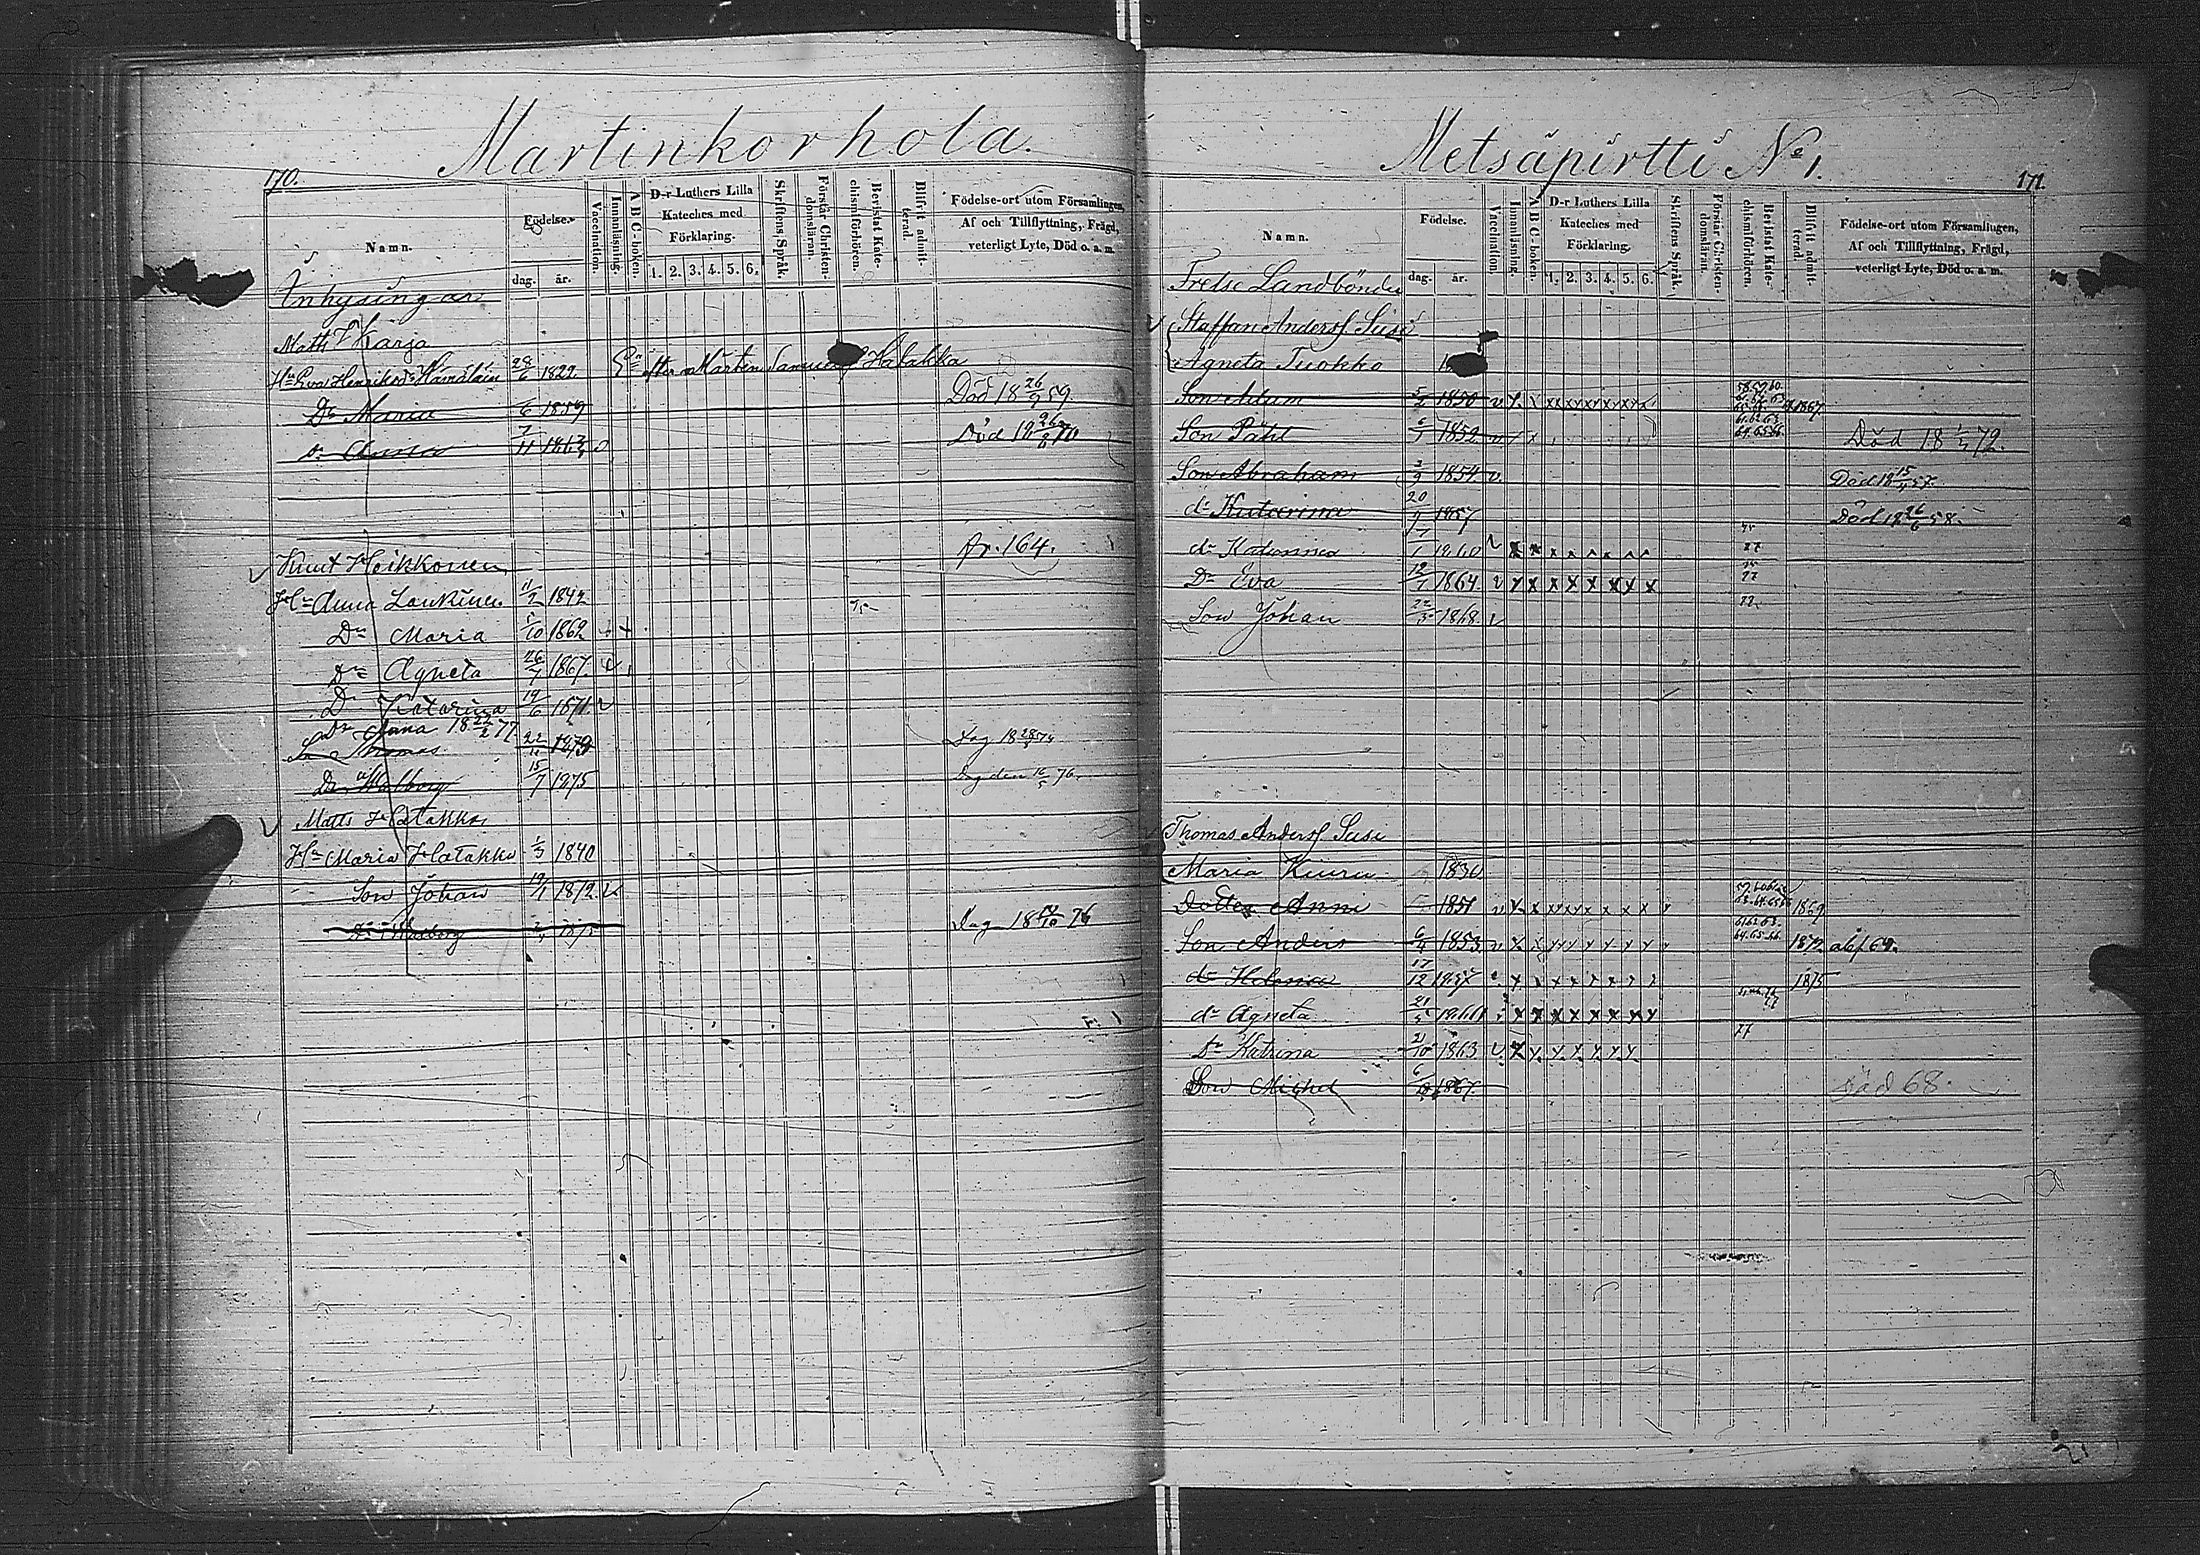 Martinkorhola.
170.
Namn.
Födelse.
dag. år.
Vaccination.
Innanläsning.
A B C-boken.
D-r Luthers Lilla Kateches med Förklaring.
1. 2. 3. 4. 5. 6.
Skriftens Språk.
Förstår Christendomsläran.
Bevistat Katechismiförhören.
Blifvit admitterad.
Födelse-ort utom Församlingen, Af och Tillflyttning, Frägd, veterligt Lyte, Död o. a. m.
Inhysingar
Matts Karja
Hu Eva Henriksdr Hämäläin 28/6 1822 Ea efter Mårten Hatakka
Dr Maria 1859 Död 18 26/9 59
dr Anna 7/11 1863 v Död 18 70
Knut Heikkonen fr. 164.
Hu Anna Loukina 11/2 1842
Dr Maria /10 1862 + +
Dr Agneta 26/7 1867
Dr Katarina 19/6 1871 v
Dr Anna 18 22/2 77
Son Thomas 22/11 1873 Dog 18 28/3 74
Dr Walborg 15/7 1875 Dog den 76
Matts Hatakka
Hu Maria Hatakka 1/3 1840
Son Johan 19/1 1872 v
Dr Walborg 1875 Dog 18 76
Metsäpirtti No 1.
171.
Namn.
Födelse.
dag. år.
Vaccination.
Innanläsning.
A B C-boken.
D-r Luthers Lilla Kateches med Förklaring.
1. 2. 3. 4. 5. 6.
Skriftens Språk.
Förstår Christendomsläran.
Bevistat Katechismiförhören.
Blifvit admitterad.
Födelse-ort utom Församlingen, Af och Tillflyttning, Frägd, veterligt Lyte, Död o. a. m.
Frelse Landbönder
Staffan Andersf Susi
Agneta Tuokko
Son Adam 1850 v 1867
Son Påhl 6/1 1852 Död 18 72.
Son Abraham 3/9 1854 v. Död 18 15/4 57.
dr Katarina 20/9 1857 Död 18 26/6 58.
dr Katarina 7/1 1860 v 77
Dr Eva 12/7 1864 v 77
Son Johan 22/3 1868 v 77
Thomas Andersf Susi
Maria Kiuru 1830
Dotter Anna 1851 v 1869
Son Anders 6/4 1853 v 61.62.63. 64.65.66. 1872
dr Helena 17/12 1857 1875
dr Agneta 21/5 1860
Dr Katrina 21/10 1863 v 77
Son Michel 6/ 1867. Död 68.